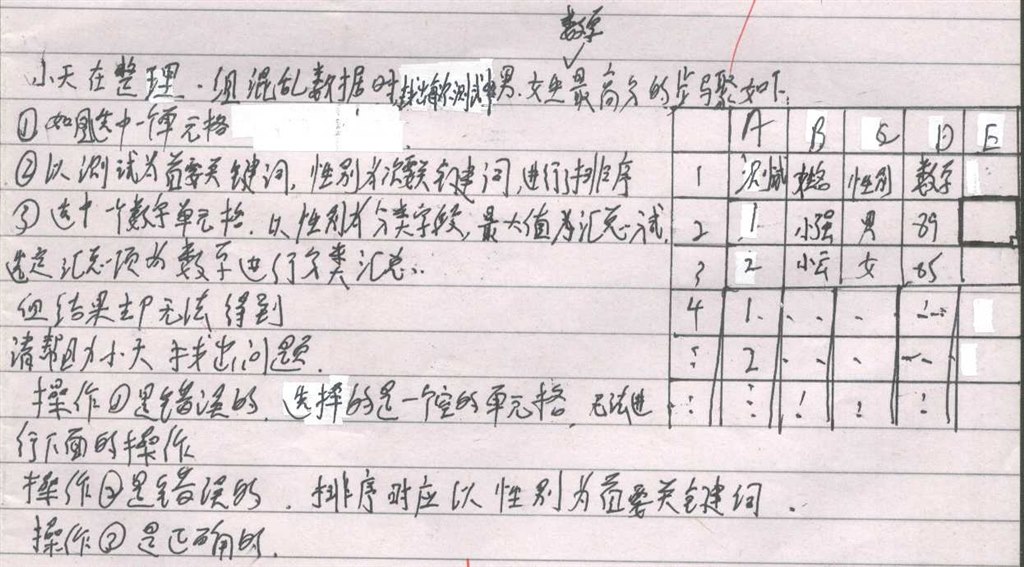 数学
小天在整理一组混乱数据时,找出每次测试中男.女生最高分的步骤如下:
①如图选中一个单元格
②以测试为首要关键词,性别为次要关键词,进行排序
③选中一个数字单元格.以性别为分类字段,最大值为汇总方式,
选定汇总项为数学进行分类汇总.
但结果却无法得到
请帮助小天找出问题.
操作①是错误的.选择的是一个空的单元格.无法进
行下面的操作
操作②是错误的.排序时应以性别为首要关键词.
操作③是正确的.
A B C D E
1 测试 姓名 性别 数学
2 1 小强 男 89
3 2 小云 女 85
4 1
2